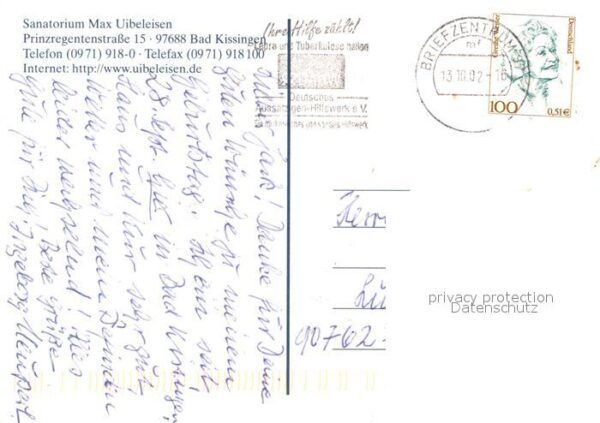 Sanatorium Max Uibeleisen
Prinzregentenstraße 15 · 97688 Bad Kissingen
Telefon (09 71) 918-0 · Telefax (09 71) 918 100
Internet: http://www.uibeleisen.de
Ihre Hilfe zählt!
Lepra und Tuberkulose heilen
Deutsches
Aussätzigen-Hilfswerk e.V.
BRIEFZENTRUM
13.10.02 - 16
Deutschland
100
0,51€
! Danke für Deine
guten Wünsche zu meinem
Geburtstag.
28. Sept. hier in Bad Kissingen,
Haus und Kur sehr gut,
Wetter und mein Befinden
leider wechselnd! Alles
Gute für Dich! Beste Grüße
Ingeborg
Herrn
90762
privacy protection
Datenschutz